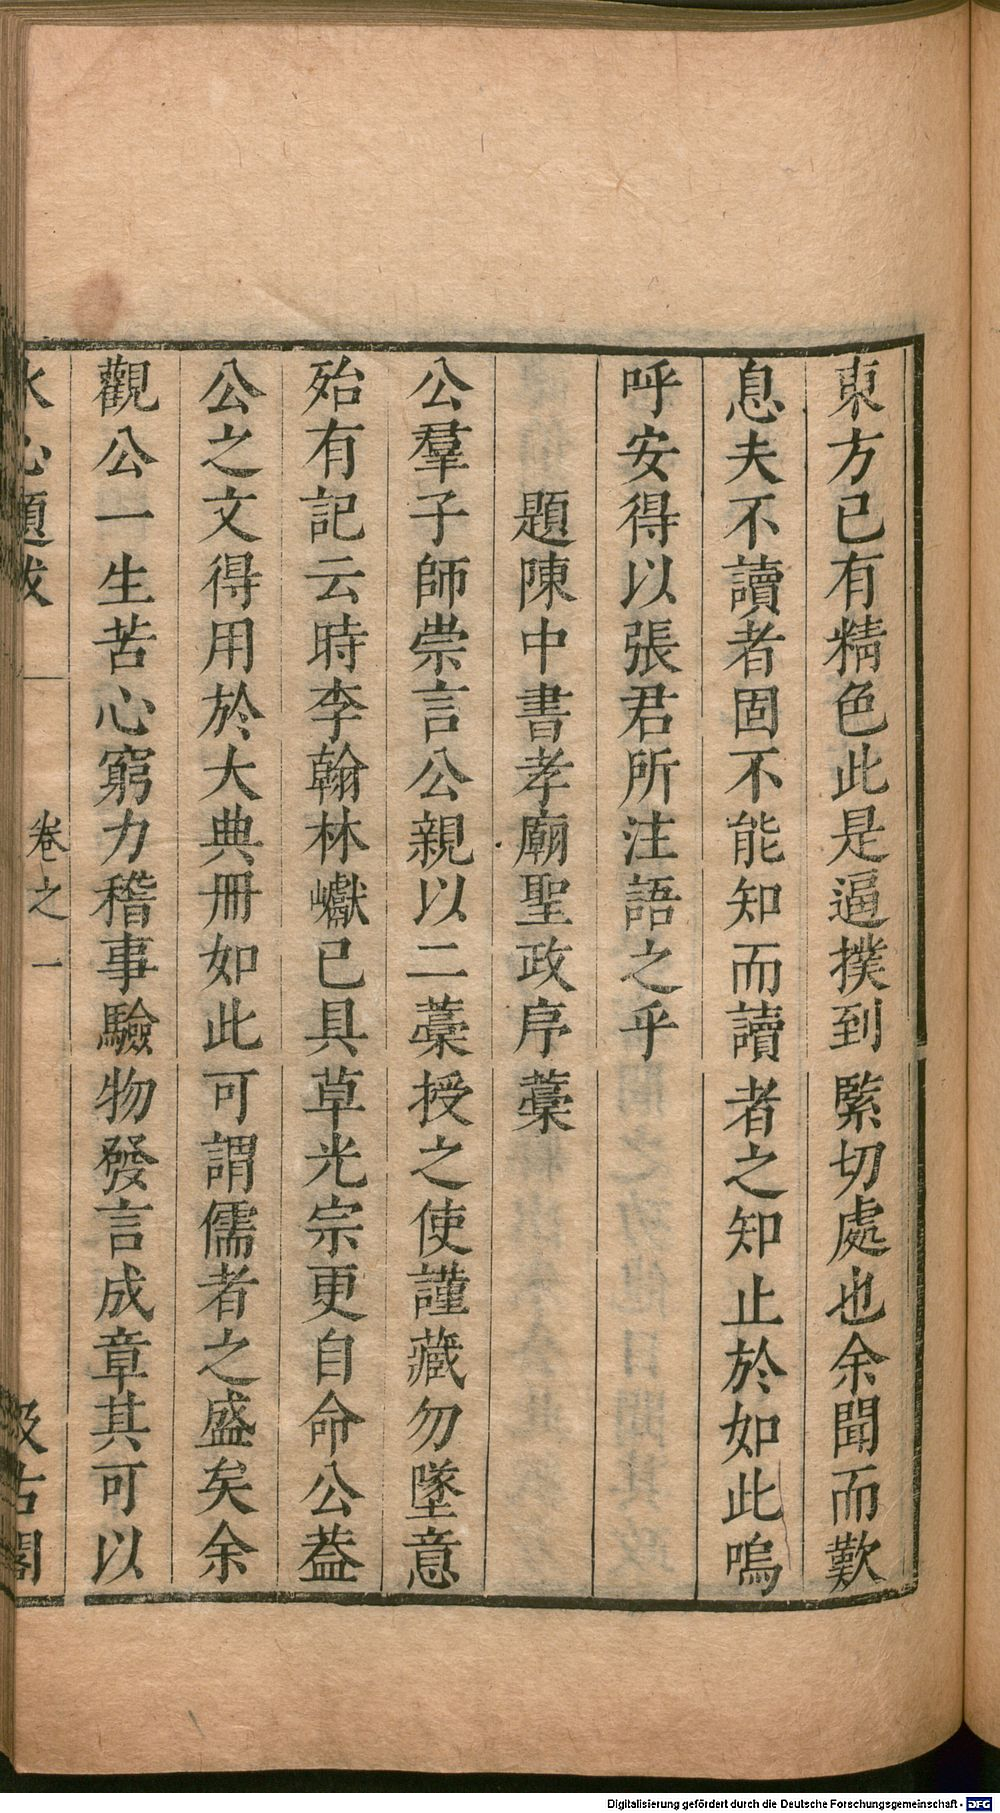 東方已有精色此是逼撲到緊切處也余聞而歎
息夫不讀者固不能知而讀者之知止於如此嗚
呼安得以張君所注語之乎
題陳中書孝廟聖政序藳
公羣子師崇言公親以二藳授之使謹藏勿墜意
殆有記云時李翰林巘已具草光宗更自命公葢
公之文得用於大典冊如此可謂儒者之盛矣余
觀公一生苦心窮力稽事驗物發言成章其可以
水心題跋
卷之一
汲古閣
Digitalisierung gefördert durch die Deutsche Forschungsgemeinschaft - DFG